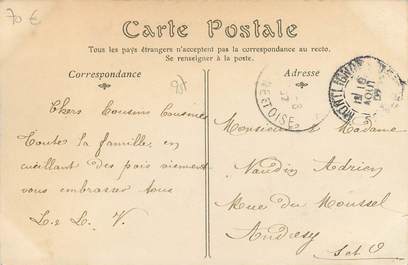 70 €
Carte Postale
Tous les pays étrangers n'acceptent pas la correspondance au recto.
Se renseigner à la poste.
Correspondance
Adresse
95
Chers Cousins Cousines
Toute la famille, en
cueillant des pois viennent
vous embrasser tous
L. L. V.
MONTLIGNON
10
AOUT
Monsieur et Madame
Naudin Adrien
Rue du Moussel
Andrésy
S et O